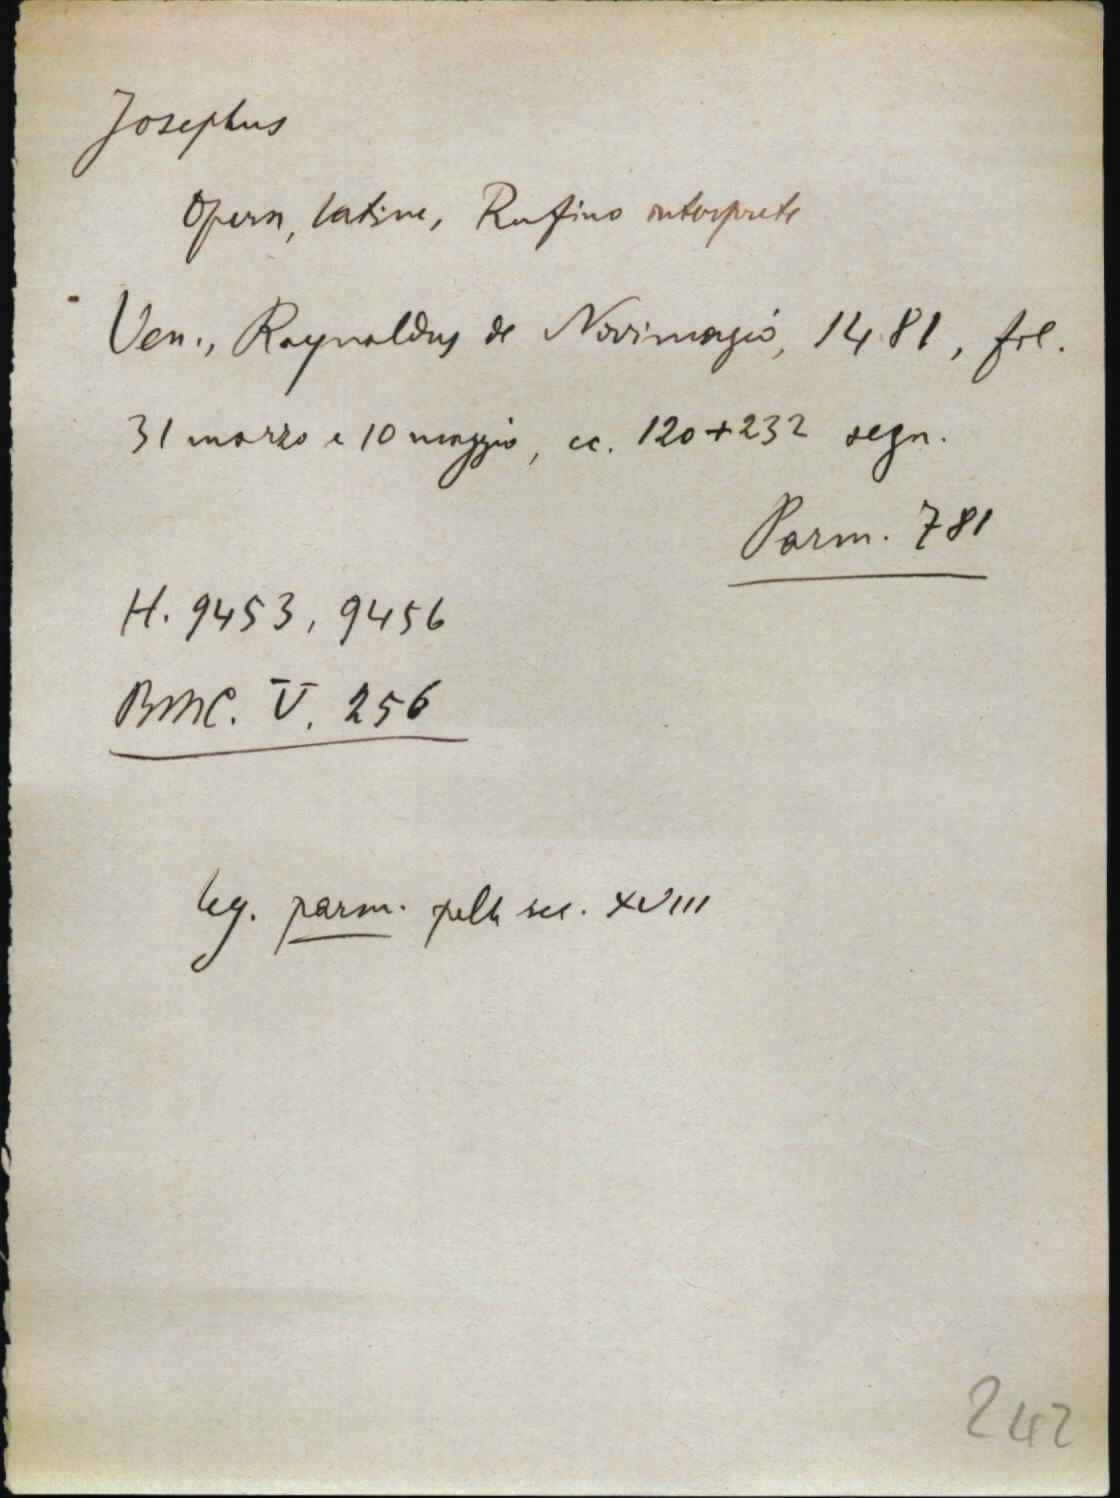 Josephus
Opera, latine, Rufino interprete
Ven., Raynaldus de Novimagio, 1481, fol.
31 marzo e 10 maggio, cc. 120+232 segn.
Parm. 781
H. 9453, 9456
BMC. V. 256
leg. parm. pelle sec. XVIII
242